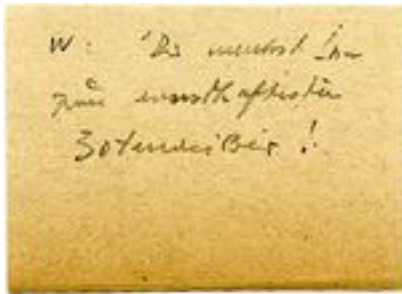 W: 'Du machst
zum ernsthaftesten
Zotenreißer!